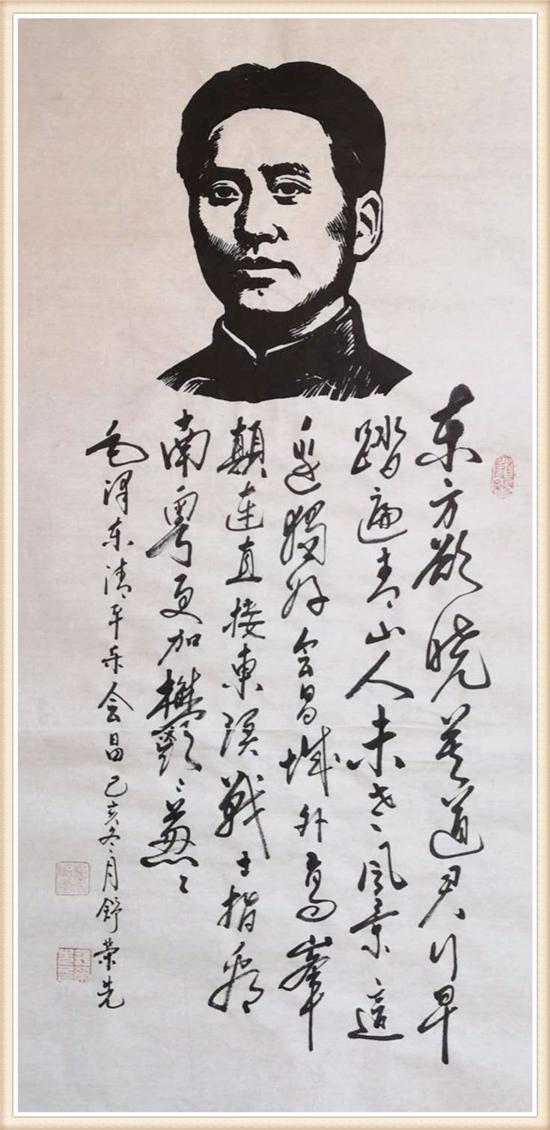 东方欲晓莫道君行早
踏遍青山人未老风景這
邊獨好会昌城外高峯
顛连直接東溟戰士指看
南粤更加鬱〻葱〻
毛泽东清平乐会昌己亥冬月舒荣先